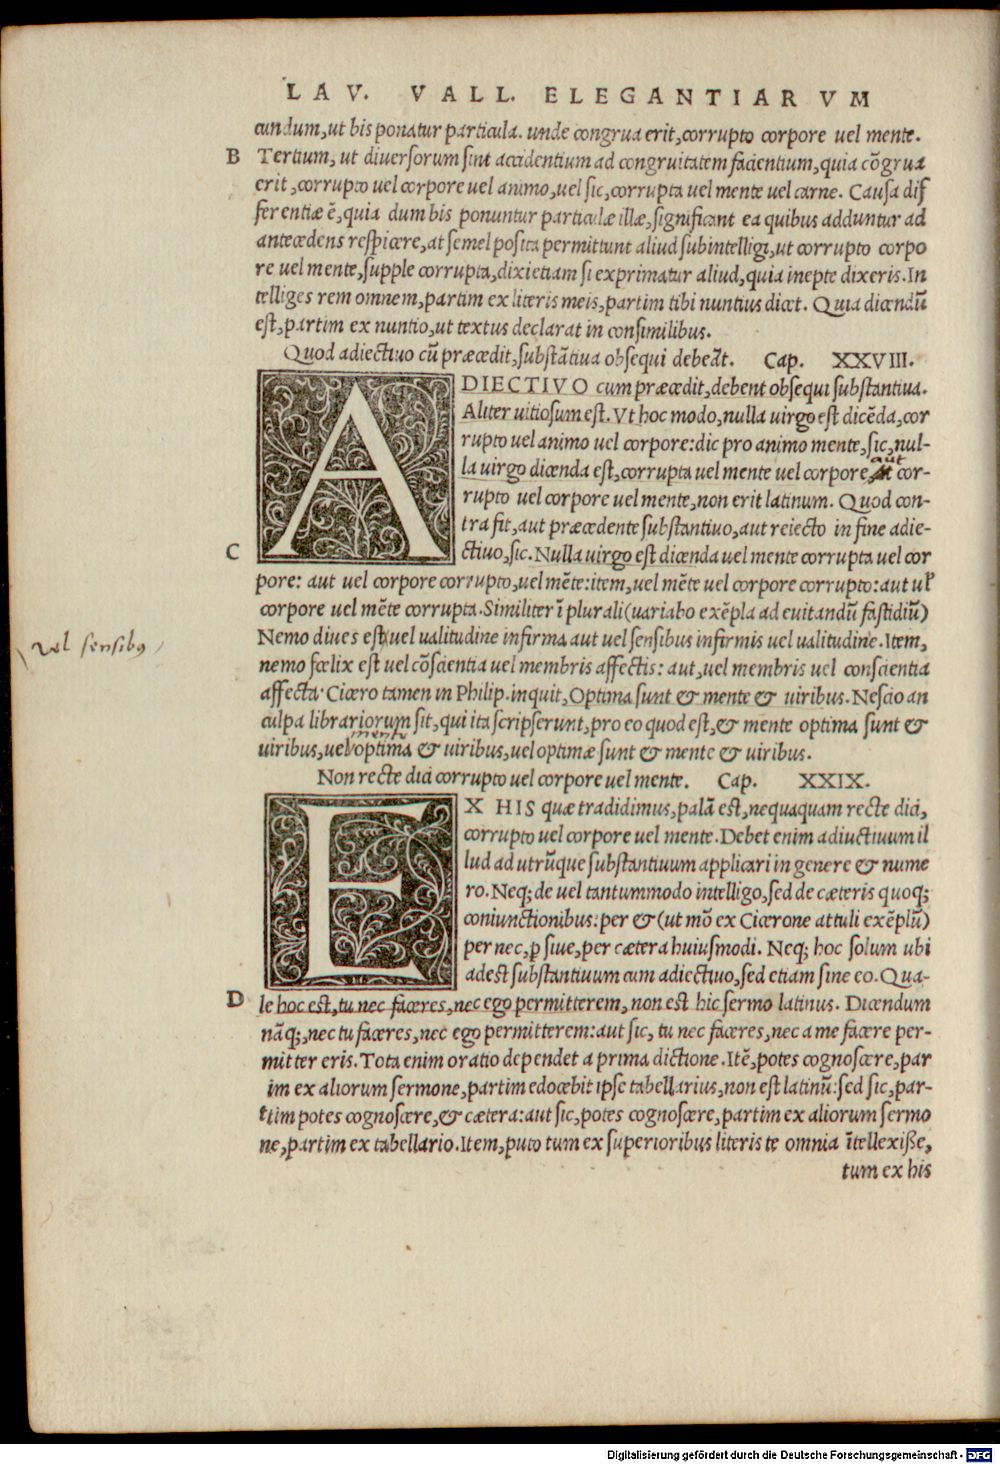 LAV. VALL. ELEGANTIARVM
cundum, ut bis ponatur particula. unde congrua erit, corrupto corpore uel mente.
B Tertium, ut diuersorum sint accidentium ad congruitatem facientium, quia cōgrua
erit, corrupto uel corpore uel animo, uel sic, corrupta uel mente uel carne. Causa dif
ferentiæ ē, quia dum bis ponuntur particulæ illæ, significant ea quibus adduntur ad
antecedens respicere, at semel posita permittunt aliud subintelligi, ut corrupto corpo
re uel mente, supple corrupta, dixi etiam si exprimatur aliud, quia inepte dixeris. In
telliges rem omnem, partim ex literis meis, partim tibi nuntius dicet. Quia dicendū
est, partim ex nuntio, ut textus declarat in consimilibus.
Quod adiectiuo cū præcedit, substātiua obsequi debeāt. Cap. XXVIII.
ADIECTIVO cum præcedit, debent obsequi substantiua.
Aliter uitiosum est. Vt hoc modo, nulla uirgo est dicēda, cor
rupto uel animo uel corpore: dic pro animo mente, sic, nul-
la uirgo dicenda est, corrupta uel mente uel corpore, aut cor-
rupto uel corpore uel mente, non erit latinum. Quod con-
tra fit, aut præcedente substantiuo, aut reiecto in fine adie-
C ctiuo, sic. Nulla uirgo est dicenda uel mente corrupta uel cor
pore: aut uel corpore corrupto, uel mēte: item, uel mēte uel corpore corrupto: aut ul̄
corpore uel mēte corrupta. Similiter ī plurali (uariabo exēpla ad euitandū fastidiū)
Nemo diues est uel ualitudine infirma aut uel sensibus infirmis uel ualitudine. Item,
vel sensibꝰ
nemo fœlix est uel cōscientia uel membris affectis: aut, uel membris uel conscientia
affecta. Cicero tamen in Philip. inquit, Optima sunt & mente & uiribus. Nescio an
culpa librariorum sit, qui ita scripserunt, pro eo quod est, & mente optima sunt &
uiribus, uel optima & uiribus, uel optimæ sunt & mente & uiribus.
Non recte dici corrupto uel corpore uel mente. Cap. XXIX.
EX HIS quæ tradidimus, palā est, nequaquam recte dici,
corrupto uel corpore uel mente. Debet enim adiuctiuum il
lud ad utrūque substantiuum applicari in genere & nume
ro. Neq; de uel tantummodo intelligo, sed de cæteris quoq;
coniunctionibus: per & (ut mō ex Cicerone attuli exēplū)
per nec, p̱ siue, per cætera huiusmodi. Neq; hoc solum ubi
adest substantiuum cum adiectiuo, sed etiam sine eo. Qua-
D le hoc est, tu nec faceres, nec ego permitterem, non est hic sermo latinus. Dicendum
nāq;, nec tu faceres, nec ego permitterem: aut sic, tu nec faceres, nec a me facere per-
mitteris. Tota enim oratio dependet a prima dictione. Itē, potes cognoscere, par
im ex aliorum sermone, partim edocebit ipse tabellarius, non est latinū: sed sic, par-
ttim potes cognoscere, & cætera: aut sic, potes cognoscere, partim ex aliorum sermo
ne, partim ex tabellario. Item, puto tum ex superioribus literis te omnia ītellexiße,
tum ex his
Digitalisierung gefördert durch die Deutsche Forschungsgemeinschaft - DFG